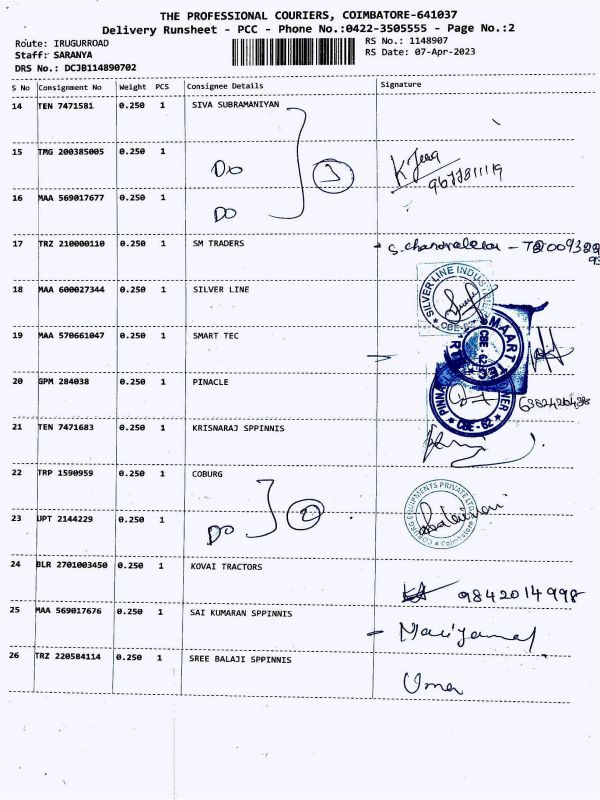 THE PROFESSIONAL COURIERS, COIMBATORE-641037
Delivery Runsheet - PCC - Phone No.:0422-3505555 - Page No.:2
Route: IRUGURROAD
RS No.: 1148907
Staff: SARANYA
RS Date: 07-Apr-2023
DRS No.: DCJB114890702
S No Consignment No Weight PCS Consignee Details Signature
14 TEN 7471581 0.250 1 SIVA SUBRAMANIYAN
15 TMG 200385005 0.250 1
Do 3
16 MAA 569017677 0.250 1
Do
17 TRZ 210000110 0.250 1 SM TRADERS
18 MAA 600027344 0.250 1 SILVER LINE
SILVER LINE INDUS
CBE-62
19 MAA 570661047 0.250 1 SMART TEC
SMAART TEC
CBE-62
20 GPM 284038 0.250 1 PINACLE
CBE-62
21 TEN 7471683 0.250 1 KRISNARAJ SPPINNIS
22 TRP 1590959 0.250 1 COBURG
COBURG EQUIPMENTS PRIVATE LTD
Coimbatore
23 UPT 2144229 0.250 1
Do 2
24 BLR 2701003450 0.250 1 KOVAI TRACTORS
9842014998
25 MAA 569017676 0.250 1 SAI KUMARAN SPPINNIS
26 TRZ 220584114 0.250 1 SREE BALAJI SPPINNIS
Uma